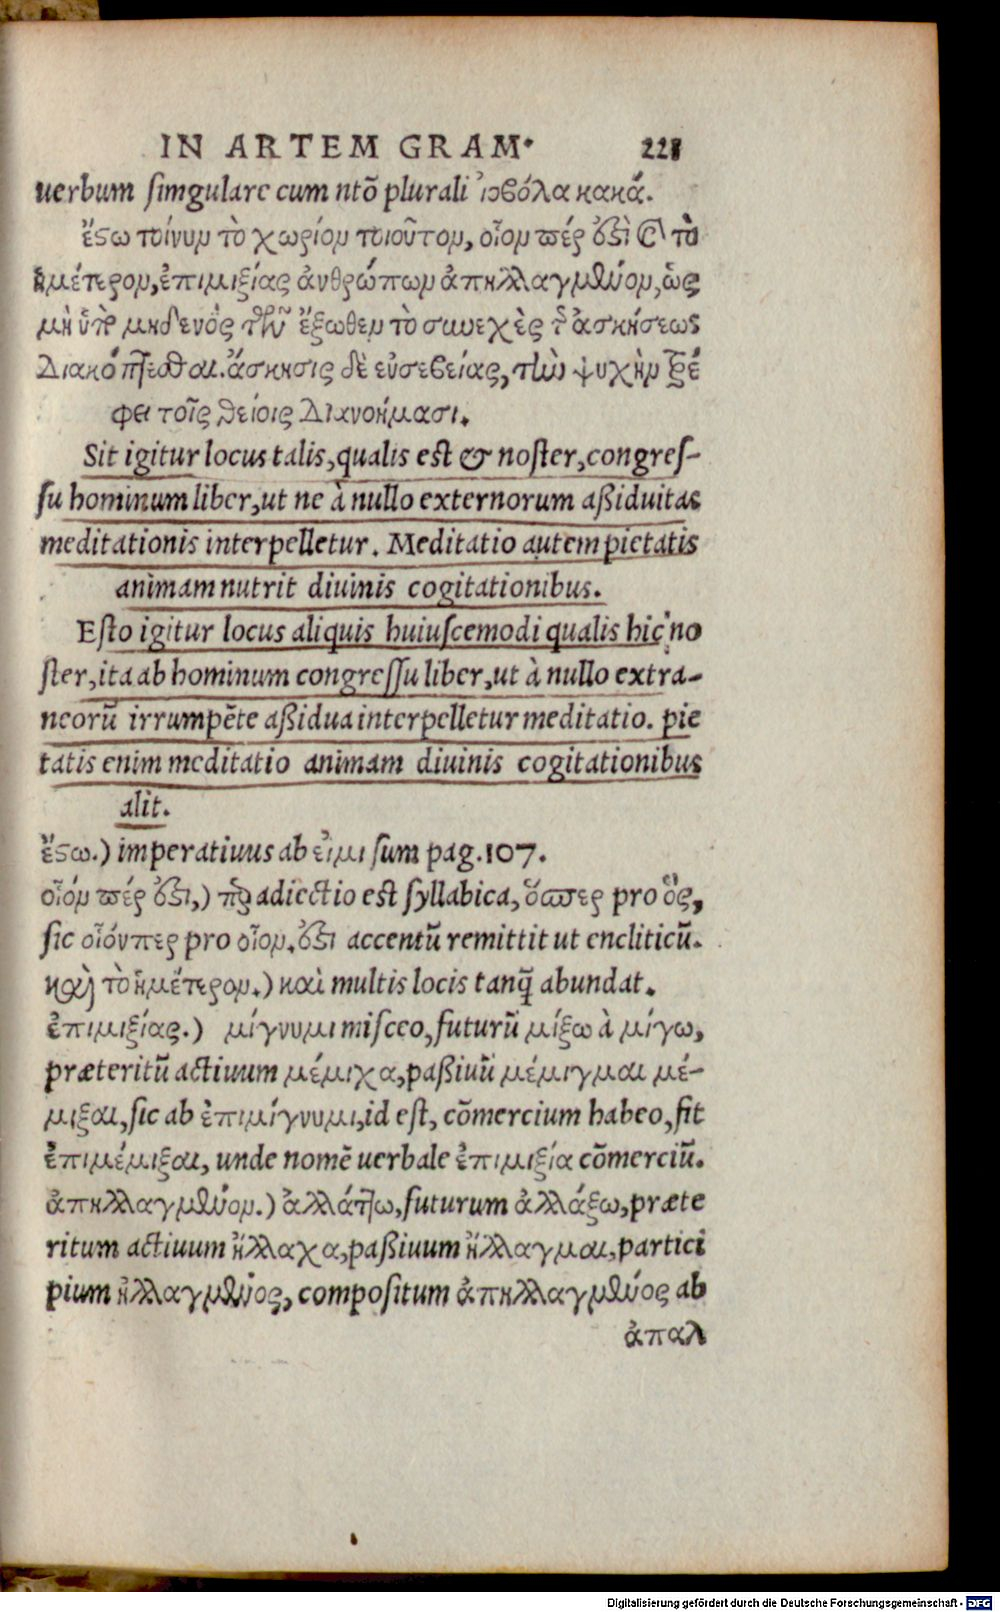 IN ARTEM GRAM. 221
uerbum singulare cum ntõ plurali ἰοβόλα κακά.
ἔστω τοίνυν τὸ χωρίον τοιοῦτον, οἷον πέρ ὅστὶ καὶ τὸ
ἡμέτερον, ἐπιμιξίας ἀνθρώπων ἀπηλλαγμένον, ὡς
μὴ ὑπὸ μηδενὸς τῶν ἔξωθεν τὸ συνεχὲς τῆς ἀσκήσεως
διακόπτεσθαι. ἄσκησις δὲ εὐσεβείας, τὴν ψυχὴν τρέ
φει τοῖς θείοις διανοήμασι.
Sit igitur locus talis, qualis est & noster, congres-
su hominum liber, ut ne à nullo externorum aßiduitas
meditationis interpelletur. Meditatio autem pietatis
animam nutrit diuinis cogitationibus.
Esto igitur locus aliquis huiuscemodi qualis hic no
ster, ita ab hominum congressu liber, ut à nullo extra-
neorũ irrumpẽte aßidua interpelletur meditatio. pie
tatis enim meditatio animam diuinis cogitationibus
alit.
ἔστω.) imperatiuus ab εἰμι sum pag.107.
οἷόν πέρ ὅστι,) πὲρ adiectio est syllabica, ὅσπερ pro ὅς,
sic οἷόνπερ pro οἷον. ὅστι accentũ remittit ut encliticũ.
καὶ τὸ ἡμέτερον.) καὶ multis locis tanq̃ abundat.
ἐπιμιξίας.) μίγνυμι misceo, futurũ μίξω à μίγω,
præteritũ actiuum μέμιχα, paßiuũ μέμιγμαι μέ-
μιξαι, sic ab ἐπιμίγνυμι, id est, cõmercium habeo, fit
ἐπιμέμιξαι, unde nomẽ uerbale ἐπιμιξία cõmerciũ.
ἀπηλλαγμένον.) ἀλλάττω, futurum ἀλλάξω, præte
ritum actiuum ἤλλαχα, paßiuum ἤλλαγμαι, partici
pium ἠλλαγμένος, compositum ἀπηλλαγμένος ab
ἀπαλ
Digitalisierung gefördert durch die Deutsche Forschungsgemeinschaft - DFG